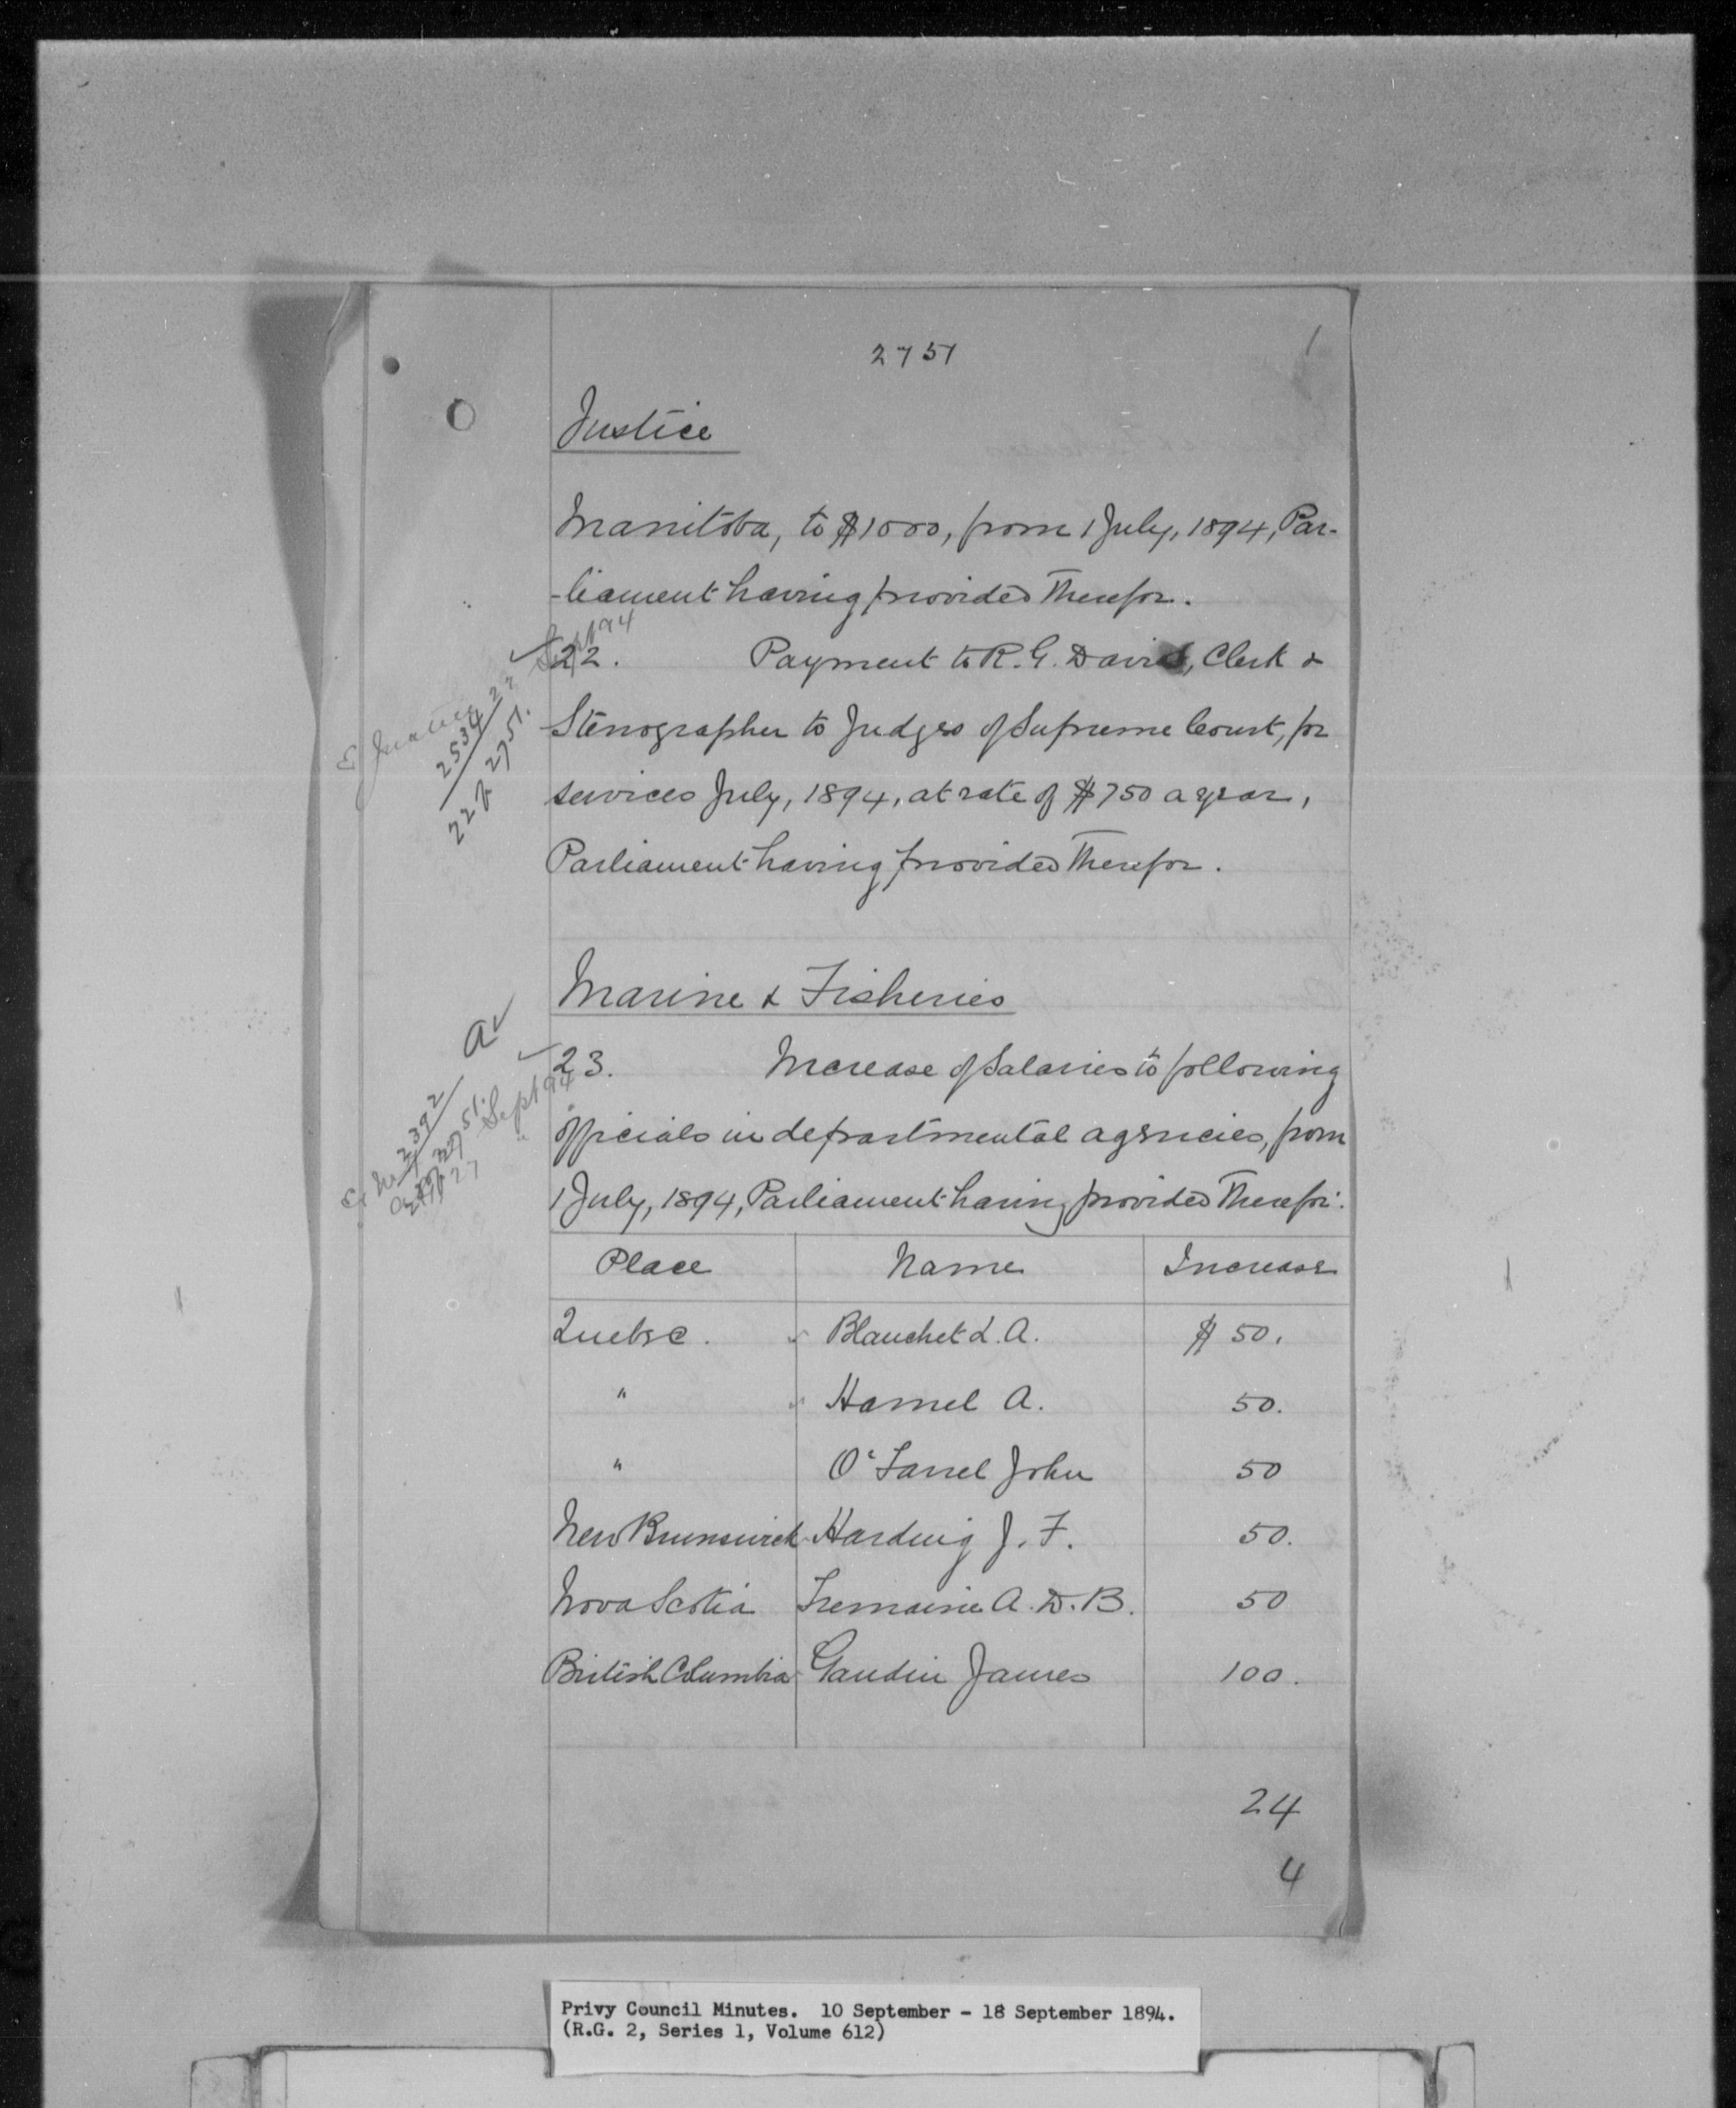 2751
Justice
Manitoba, to $1000, from 1 July, 1894, Par-
-liament having provided therefor.
22. Payment to R. G. David, Clerk &
Stenographer to Judges of Supreme Court, for
services July, 1894, at rate of $750 a year,
Parliament having provided therefor.
Sept 94
2534
22 2751.
Marine & Fisheries
23. Increase of Salaries to following
officials in departmental agencies, from
1 July, 1894, Parliament having provided therefor:
a
2392
2751. Sept 94
Place Name Increase
Quebec. Blanchet L. A. $ 50.
" Hamel A. 50.
" O'Farrel John 50
New Brunswick Harding J. F. 50.
Nova Scotia Tremaine A. D. B. 50
British Columbia Gaudin James 100.
24
4
Privy Council Minutes. 10 September - 18 September 1894.
(R.G. 2, Series 1, Volume 612)